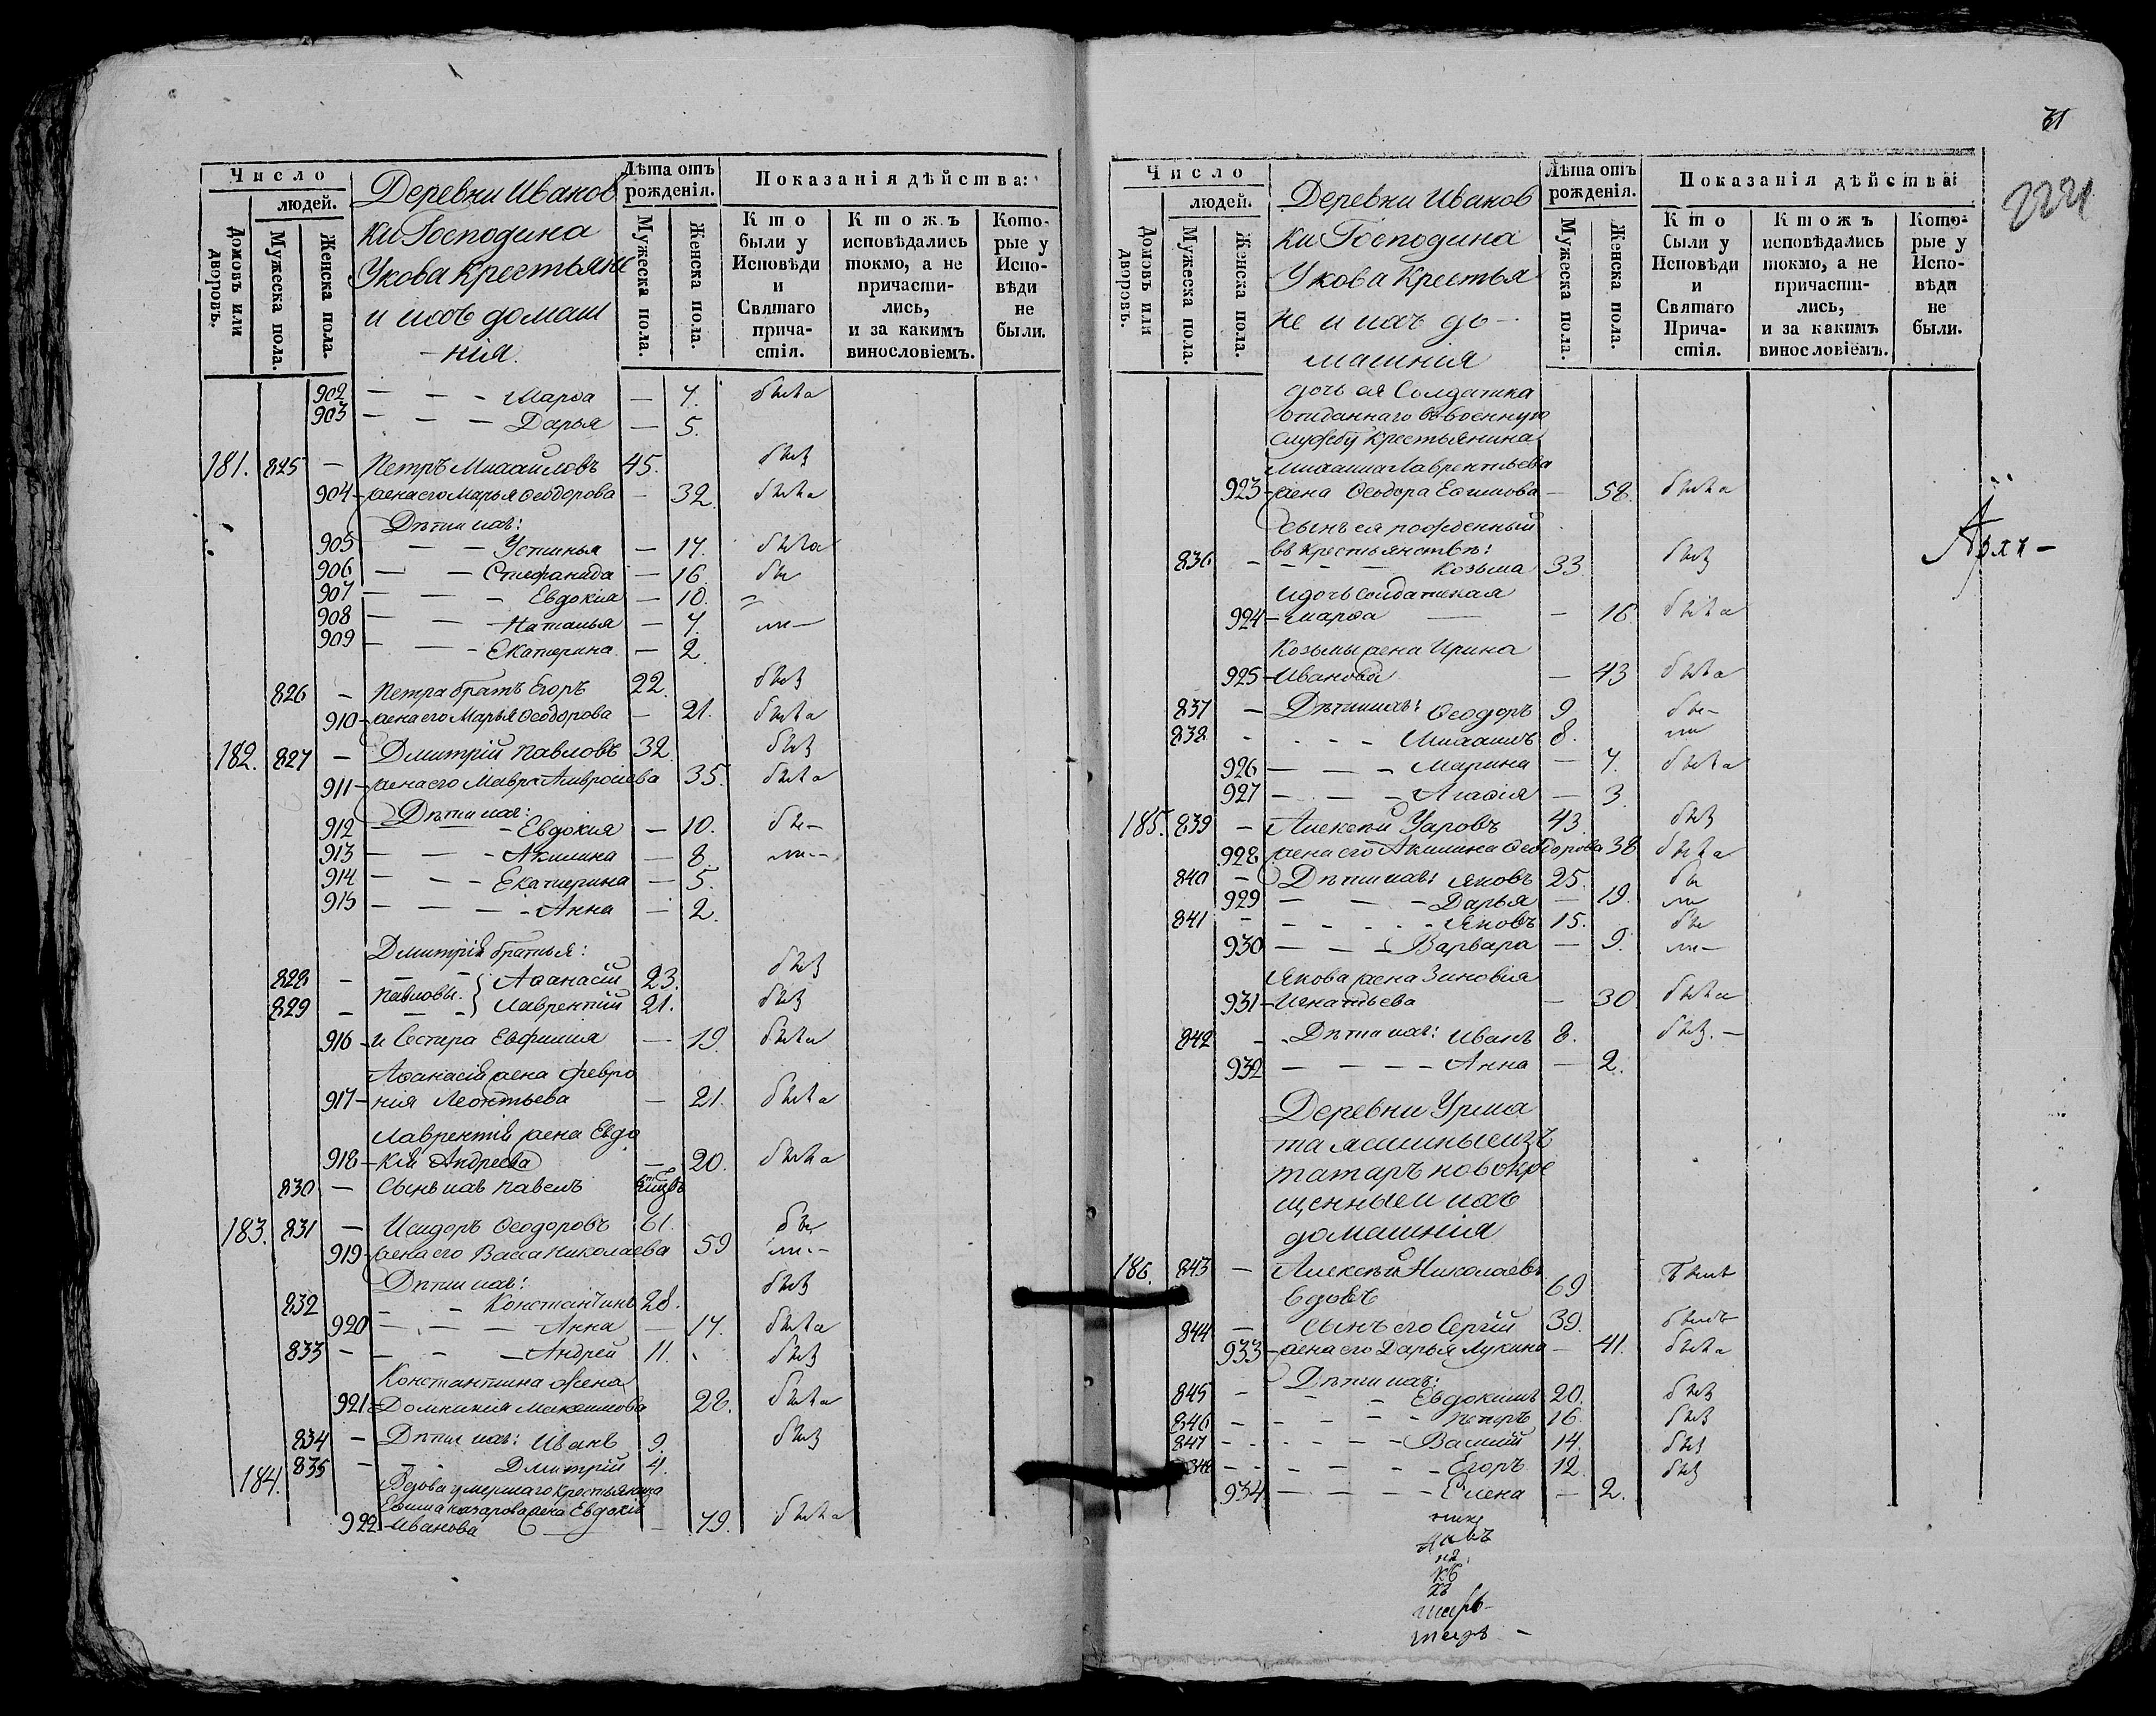 Число
людей.
Домовъ или дворовъ.
Мужеска пола.
Женска пола.
Деревни Иванов
ки Господина
Укова Крестьяне
и ихъ домаш
-нія.
Лѣта отъ рожденія.
Мужеска пола.
Женска пола.
Показанія дѣйства:
Кто были у Исповѣди и Святаго причастія.
Ктожъ исповѣдались токмо, а не причастились, и за какимъ винословіемъ.
Которые у Исповѣди не были.
902 — — - Марѳа — 7. была
903 — — — Дарья — 5.
181. 825 — Петръ Михайловъ 45. былъ
904 - жена его Марья Ѳеодорова — 32. была
Дѣти ихъ:
905 — — Устинья — 17. была
906 — — Стефанида — 16. бы
907 — — - Евдокія — 10.
908 — — - Наталья — 7.
909 — — - Екатерина — 2.
826 — Петра братъ Егоръ 22. былъ
910 - жена его Марья Ѳеодорова — 21. была
182. 827 — Дмитрій Павловъ 32. былъ
911 - жена его Мавра Амвросіева 35. была
Дѣти ихъ:
912 — — - Евдокія — 10. бы-
913 — — - Акилина — 8.
914 — — - Екатерина — 5.
915 — — — - Анна — 2.
Дмитрія братья:
828 — Павловы. { Аѳанасій 23. былъ
829 — Лаврентій 21. былъ
916 - и Сестра Евфимия — 19. была
Аѳанасія жена Февро
917 - ния Леонтьева — 21. была
Лаврентія жена Евдо
918 - кія Андреева — 20. была
830 — Сынъ ихъ Павелъ
183. 831 — Исидоръ Ѳеодоровъ 61. бы
919 - жена его Васса Николаева 59
Дѣти ихъ:
832 — - Константинъ 28. былъ
920 — — — Анна — 17. была
833 - — - — Андрей 11. былъ
Константина жена
921 - Домникия Максимова 28. была
834 — Дѣти ихъ: Иванъ 9. былъ
835 — - Дмитрій 4.
184. Вдова умершаго крестьянина
Ефима Назарова жена Евдокія
922 - Иванова — 79. была
31
Число
людей.
Домовъ или дворовъ.
Мужеска пола.
Женска пола.
Деревни Иванов
ки Господина
Укова Крестья
не и ихъ до-
машнія
Лѣта отъ рожденія.
Мужеска пола.
Женска пола.
Показанія дѣйства:
Кто были у Исповѣди и Святаго Причастія.
Ктожъ исповѣдались токмо, а не причастились, и за какимъ винословіемъ.
Которые у Исповѣди не были.
дочь ея Солдатка
отданнаго въ военную
службу Крестьянина
Михаила Лаврентьева
923 - жена Ѳеодора Ефимова — 58. была
сынъ ея рожденный
въ крестьянствѣ:
836 - - - — Козьма 33. былъ
и дочь солдатская
924 - Марѳа — — 16 была
Козьмы жена Ирина
925 - Иванова — 43 была
837 — Дѣти ихъ: Ѳеодоръ 9 бы-
838 - - - - Михаилъ 8.
926 — — - Марина — 7. была
927 — — - Агафія — 3
185. 839 — Алексѣй Уаровъ 43. былъ
928 жена его Акилина Ѳеодорова 38 была
840 — Дѣти ихъ: Яковъ 25. бы
929 — — - Дарья — 19.
841 - - - - - Яковъ 15. бы
930 — — - Варвара — 9.
Якова жена Зиновия
931 - Игнатьева — 30 была
842 - Дѣти ихъ: Иванъ 8. былъ. —
932 — — — - Анна — 2.
Деревни Урма
та ясашные изъ
татаръ новокре
щенные и ихъ
домашнія
186. 843 — Алексѣй Николаевъ
вдовъ 69 былъ
844 — Сынъ его Сергій 39. былъ
933 - жена его Дарья Лукина — 41. была
Дѣти ихъ:
845 - - - Евдокимъ 20. былъ
846 - - - - - Петръ 16. былъ
847 - - - - — Василій 14. былъ
848 - - - - - Егоръ 12. былъ
934 — — — - Елена — 2.